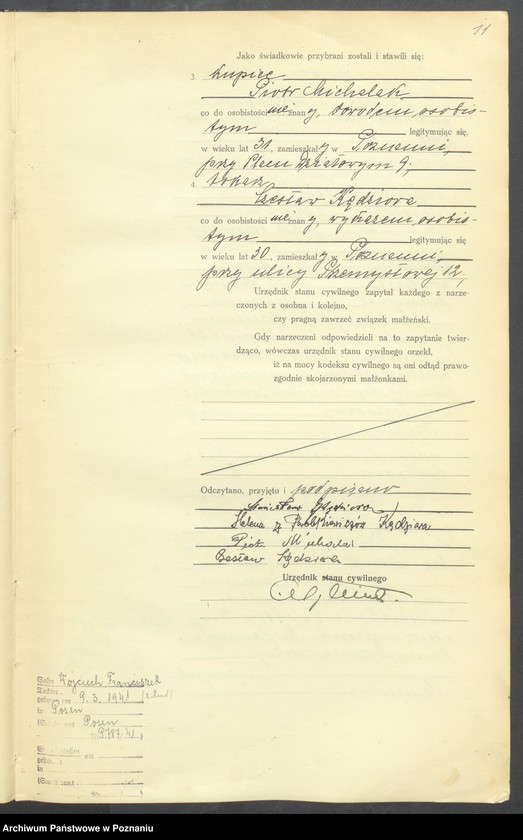 11
Jako świadkowie przybrani zostali i stawili się:
3. Kupiec
Piotr Michalak
co do osobistości nieznany, dowodem osobis-
tym legitymując się,
w wieku lat 31, zamieszkały w Poznaniu,
przy Placu Działowym 9,
4. tokarz
Czesław Kędziora
co do osobistości nieznany, wykazem osobis-
tym legitymując się
w wieku lat 30, zamieszkały w Poznaniu,
przy ulicy Przemysłowej 12,
Urzędnik stanu cywilnego zapytał każdego z narze-
czonych z osobna i kolejno,
czy pragną zawrzeć związek małżeński.
Gdy narzeczeni odpowiedzieli na to zapytanie twier-
dząco, wówczas urzędnik stanu cywilnego orzekł,
iż na mocy kodeksu cywilnego są oni odtąd prawo-
zgodnie skojarzonymi małżonkami.
Odczytano, przyjęto i podpisano
Stanisław Kędziora
Helena z Kędziora
Piotr Michalak
Czesław Kędziora
Urzędnik stanu cywilnego
Wojciech Franciszek
geboren am 9.3.1941
in Posen
Posen
787/41
in
Archiwum Państwowe w Poznaniu